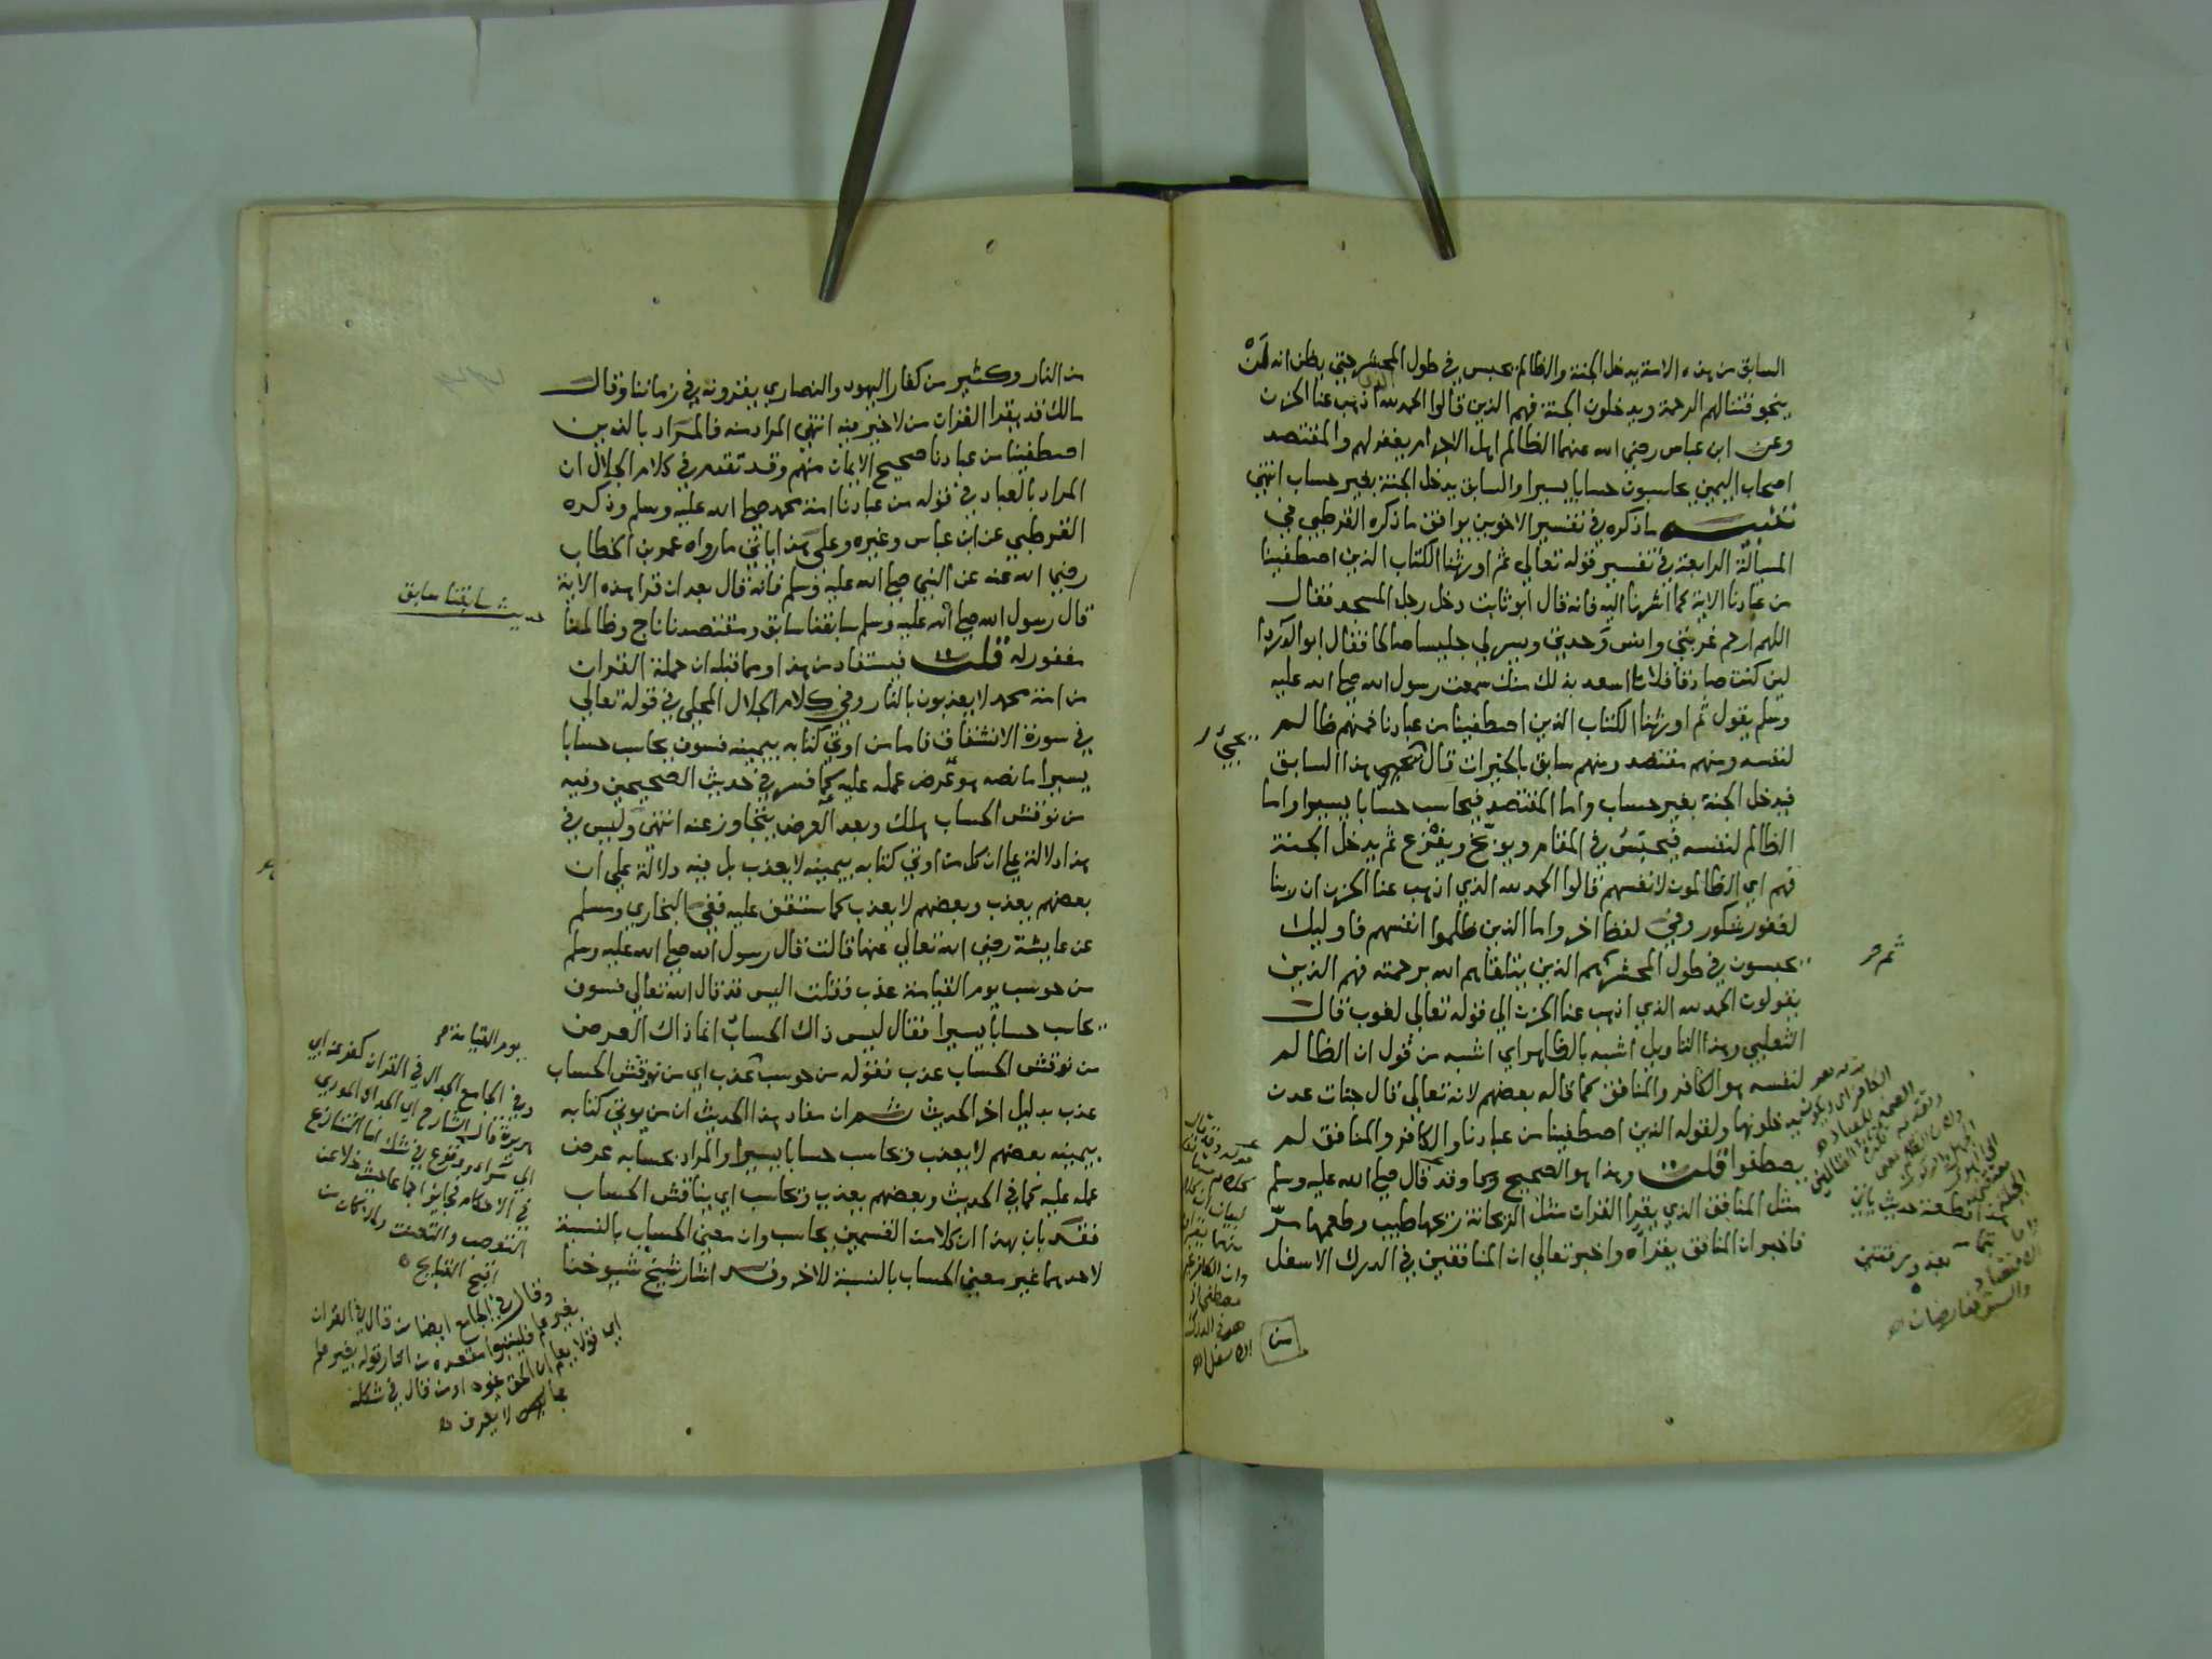 السابق من هذه الامة يدخل الجنة والظالم يحبس في طول المحشر حتي يظن انه لن
ينجو فتنالهم الرحمة ويدخلون الجنة فهم الذين قالوا الحمد لله الذي اذهب عنا الحزن
وعن ابن عباس رضي الله عنهما الظالم اهل الاجرام يغفر لهم والمقتصد
اصحاب اليمين يحاسبون حسابا يسيرا والسابق يدخل الجنة بغير حساب انتهي
تنبيه ما ذكره في تفسير الاخوين يوافق ما ذكره القرطبي في
المسألة الرابعة في تفسير قوله تعالي ثم اورثنا الكتاب الذين اصطفينا
من عبادنا الاية كما اشرنا اليه فانه قال ابو ثابت دخل رجل المسجد فقال
اللهم ارحم غربتي وانس وحدتي ويسر لي جليسا صالحا فقال ابو الدرداء
لين كنت صادقا فلانا اسعد بذلك منك سمعت رسول الله صلي الله عليه
وسلم يقول ثم اورثنا الكتاب الذين اصطفينا من عبادنا فمنهم ظالم
لنفسه ومنهم مقتصد ومنهم سابق بالخيرات قال يجي هذا السابق
فيدخل الجنة بغير حساب واما المقتصد فيحاسب حسابا يسيرا واما
الظالم لنفسه فيحبس في المقام ويوبخ ويقرع ثم يدخل الجنة
فهم اي الظالمون لانفسهم قالوا الحمد لله الذي اذهب عنا الحزن ان ربنا
لغفور شكور وفي لفظ اخر واما الذين ظلموا انفسهم فاوليك
يحبسون في طول المحشر هم الذين يتلقاهم الله برحمته فهم الذين
يقولون الحمد لله الذي اذهب عنا الحزن الي قوله تعالي لغوب قال
الثعلبي وهذا التاويل اشبه بالظاهر اي اشبه من قول ان الظالم
لنفسه هو الكافر والمنافق كما قاله بعضهم لانه تعالي قال جنات عدن
يدخلونها ولقوله الذين اصطفينا من عبادنا والكافر والمنافق لم
يصطفوا قلت وهذا هو الصحيح وقد قال صلي الله عليه وسلم
مثل المنافق الذي يقرا القران مثل الريحانة ريحها طيب وطعمها مر
فاخبر ان المنافق يقراه واخبر تعالي ان المنافقين في الدرك الاسفل
من
ثم
من النار وكثير من كفار اليهود والنصاري يقرونه في زماننا وقال
مالك قد يقرا القران من لا خير فيه انتهي المراد منه فالمراد بالذين
اصطفينا من عبادنا صحيح الايمان منهم وقد تقدم في كلام الجلال ان
المراد بالعباد في قوله من عبادنا امة محمد صلي الله عليه وسلم وذكره
القرطبي عن ابن عباس وغيره وعلي هذا ياتي ما رواه عمر بن الخطاب
رضي الله عنه عن النبي صلي الله عليه وسلم فانه قال بعد ان قرا هذه الاية
قال رسول الله صلي الله عليه وسلم سابقنا سابق ومقتصدنا ناج وظالمنا
مغفور له قلت فيستفاد من هذا ومما قبله ان حملة القران
من امة محمد لا يعذبون بالنار وفي كلام الجلال المحلي في قوله تعالي
في سورة الانشقاق فاما من اوتي كتابه بيمينه فسوف يحاسب حسابا
يسيرا ما نصه هو عرض عمله عليه كما فسر في حديث الصحيحين وفيه
من نوقش الحساب هلك وبعد العرض يتجاوز عنه انتهي وليس في
هذا دلالة علي ان كل من اوتي كتابه بيمينه لا يعذب بل فيه دلالة علي ان
بعضهم يعذب وبعضهم لا يعذب كما ستقف عليه ففي البخاري ومسلم
عن عايشة رضي الله تعالي عنها قالت قال رسول الله صلي الله عليه وسلم
من حوسب يوم القيامة عذب فقلت اليس قد قال الله تعالي فسوف
يحاسب حسابا يسيرا فقال ليس ذاك الحساب انما ذاك العرض
من نوقش الحساب عذب فقوله من حوسب عذب اي من نوقش الحساب
عذب بدليل اخر الحديث ثم ان مفاد هذا الحديث ان من يوتي كتابه
بيمينه بعضهم لا يعذب ويحاسب حسابا يسيرا والمراد بحسابه عرض
عمله عليه كما في الحديث وبعضهم يعذب ويحاسب اي يناقش الحساب
فقد بان بهذا ان كلا من القسمين يحاسب وان معني الحساب بالنسبة
لاحدهما غير معني الحساب بالنسبة للاخر وقد اشار شيخ شيوخنا
حديث سابقنا سابق
يوم القيامة
وفي الجامع الجدال في القران كفر عن ابي
هريرة قال الشارح اي الجدال المودي
الي مراء ووقوع في شك اما التنازع
في الاحكام فجايز اجماعا حيث خلا عن
التعصب والتعنت والا كان من
اقبح القبايح
وقال في الجامع ايضا من قال في القران
بغير علم فليتبوا مقعده من النار قوله بغير علم
اي قولا يعلم ان الحق غيره او من قال في مشكله
بما لا يعرف